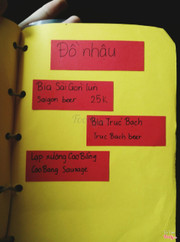 Đồ nhậu
Bia Sài Gòn lùn
Saigon beer 25k
Bia Trúc Bạch
Truc Bach beer
Lạp xưởng Cao Bằng
Cao Bang Sausage